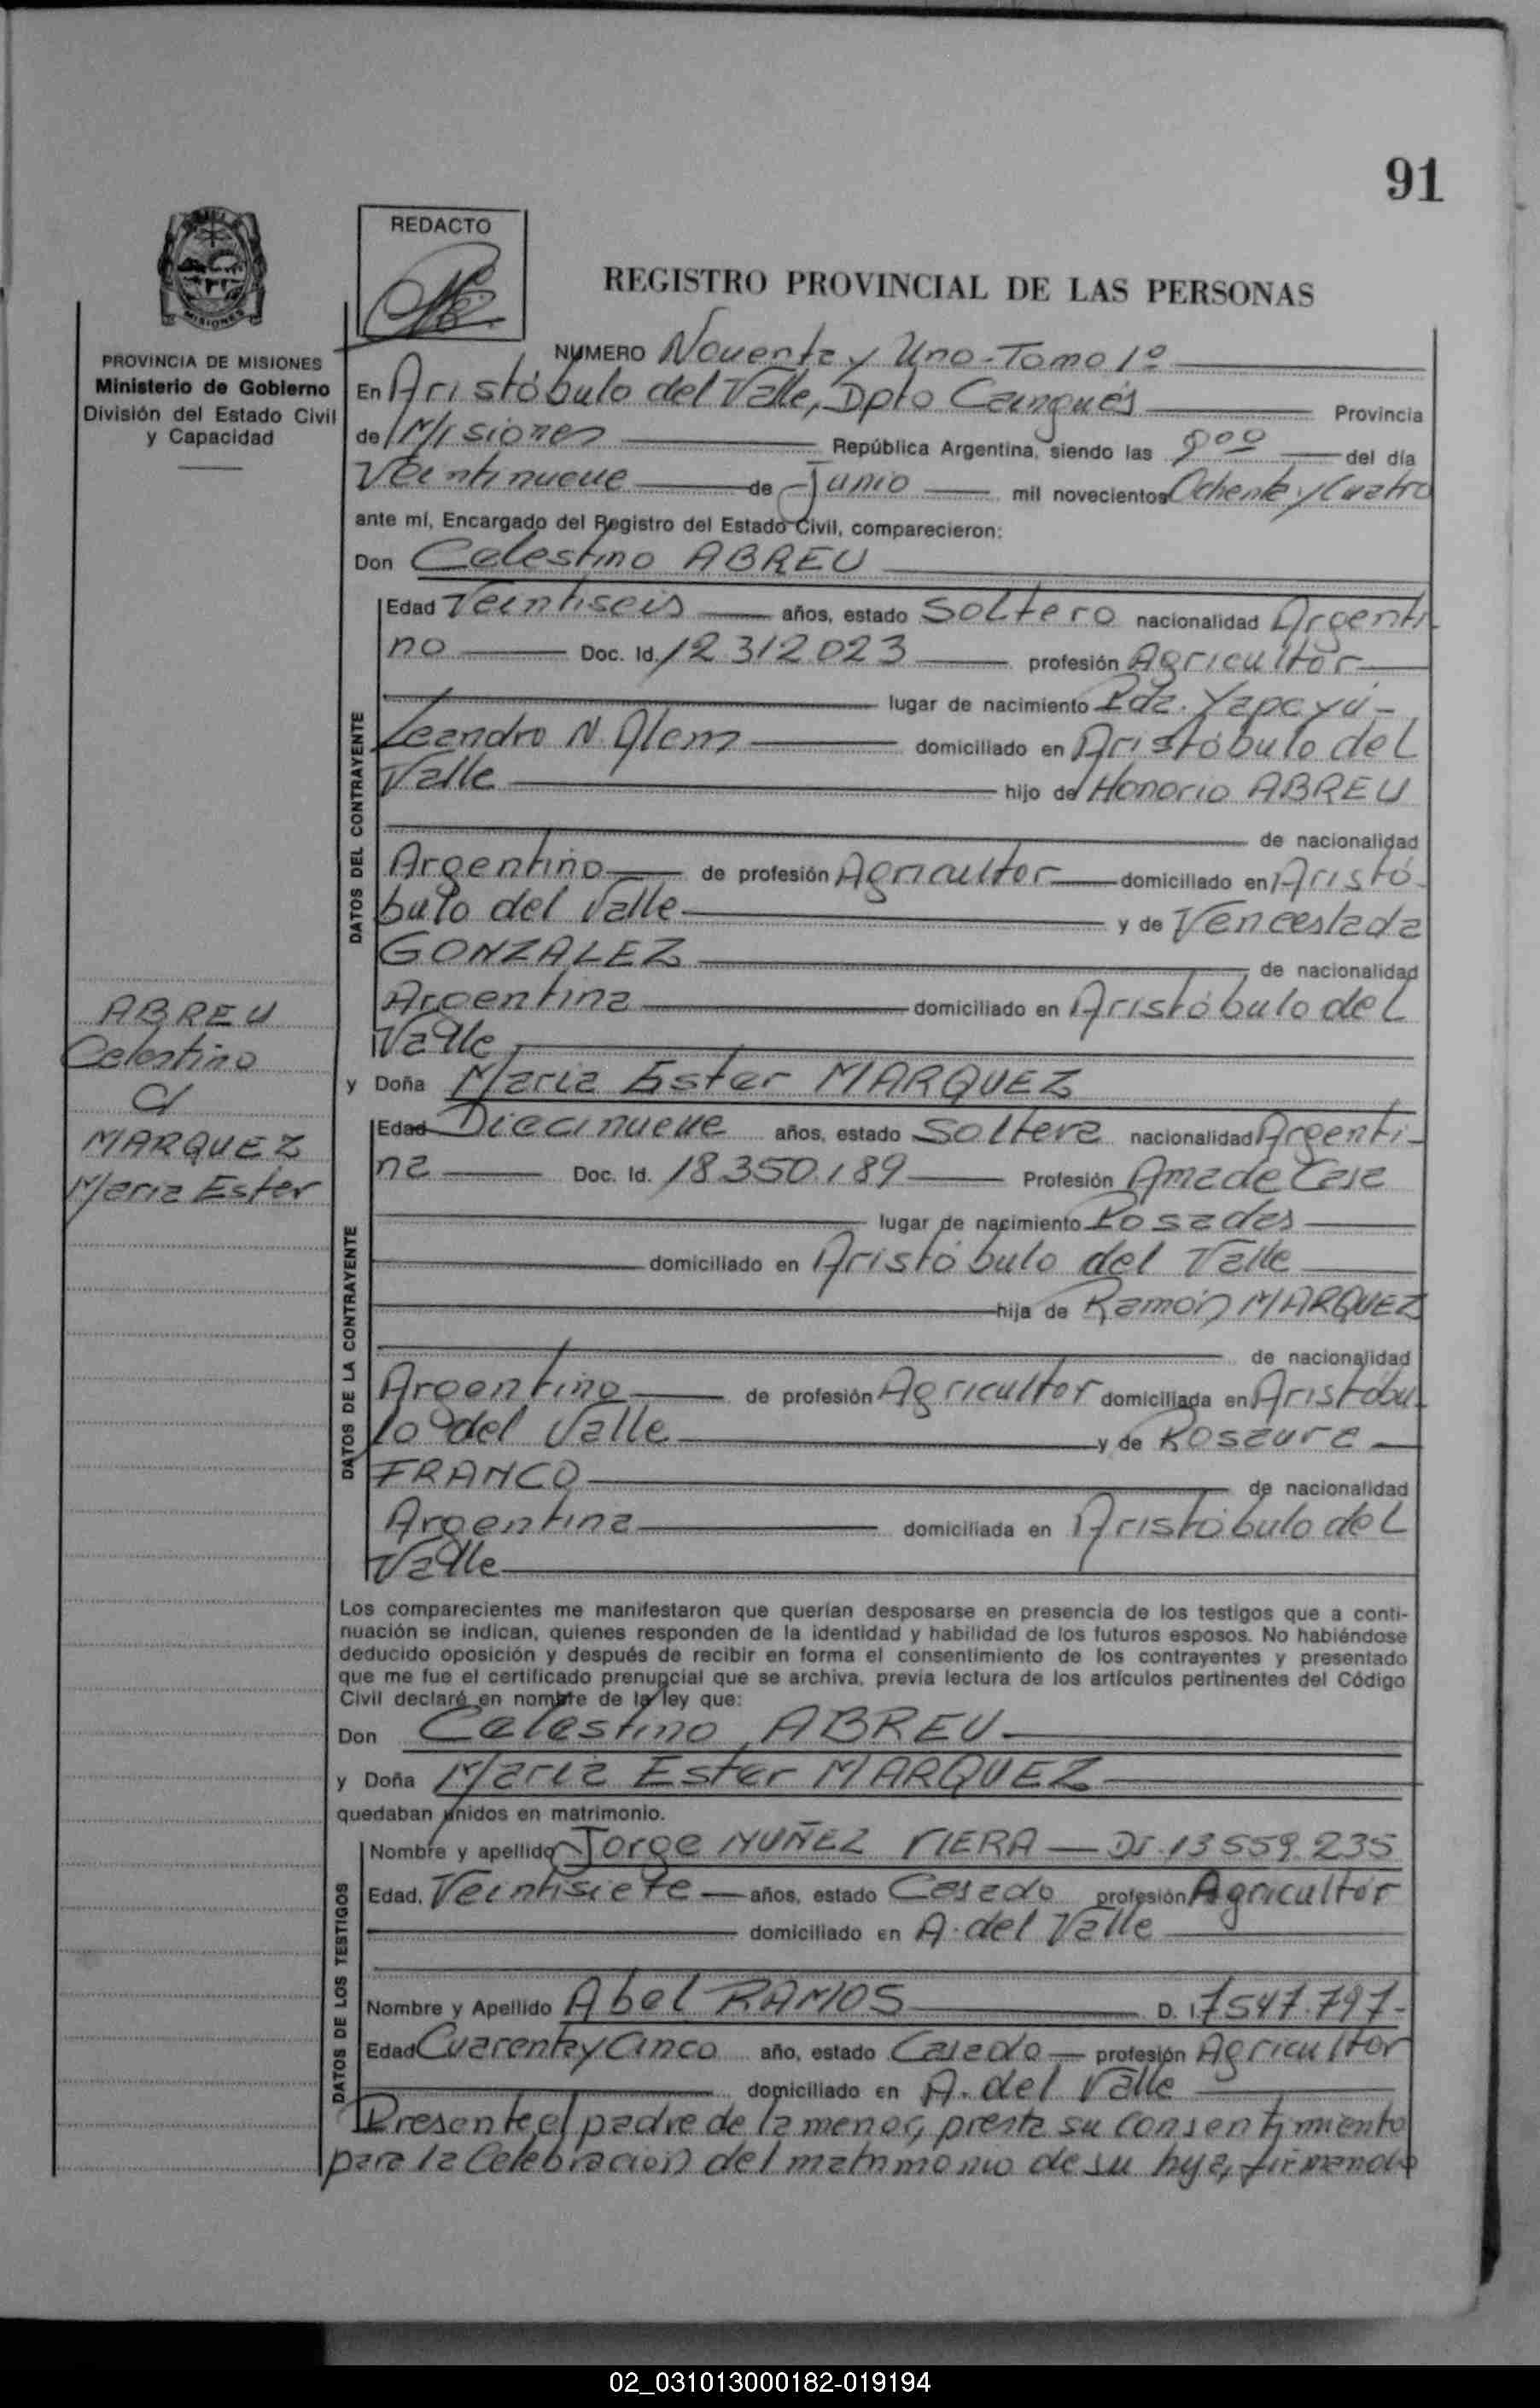 91
REDACTO
REGISTRO PROVINCIAL DE LAS PERSONAS
MISIONES
PROVINCIA DE MISIONES
Ministerio de Gobierno
División del Estado Civil
y Capacidad
NUMERO Noventa y Uno - Tomo 1º
En Aristóbulo del Valle, Dpto Cainguás Provincia
de Misiones República Argentina, siendo las del día
Veintinueve de Junio mil novecientos Ochenta y Cuatro
ante mí, Encargado del Registro del Estado Civil, comparecieron:
Don Celestino ABREU
Edad Veintiseis años, estado Soltero nacionalidad Argenti
no Doc. Id. 12.312.023 profesión Agricultor
lugar de nacimiento Pda. Yapeyú -
Leandro N. Alem domiciliado en Aristóbulo del
Valle hijo de Honorio ABREU
de nacionalidad
Argentino de profesión Agricultor domiciliado en Aristó
bulo del Valle y de Venceslada
GONZALEZ de nacionalidad
Argentina domiciliado en Aristóbulo del
Valle
DATOS DEL CONTRAYENTE
ABREU
Celestino
c/
MARQUEZ
Maria Ester
y Doña Maria Ester MARQUEZ
Edad Diecinueve años, estado Soltera nacionalidad Argenti-
na Doc. Id. 18.350.189 Profesión Ama de Casa
lugar de nacimiento Posadas
domiciliado en Aristóbulo del Valle
hija de Ramón MARQUEZ
de nacionalidad
Argentino de profesión Agricultor domiciliada en Aristóbu
lo del Valle y de Rosaura
FRANCO de nacionalidad
Argentina domiciliada en Aristóbulo del
Valle
DATOS DE LA CONTRAYENTE
Los comparecientes me manifestaron que querían desposarse en presencia de los testigos que a conti-
nuación se indican, quienes responden de la identidad y habilidad de los futuros esposos. No habiéndose
deducido oposición y después de recibir en forma el consentimiento de los contrayentes y presentado
que me fue el certificado prenupcial que se archiva, previa lectura de los artículos pertinentes del Código
Civil declaré en nombre de la ley que:
Don Celestino ABREU
y Doña Maria Ester MARQUEZ
quedaban unidos en matrimonio.
Nombre y apellido Jorge NUÑEZ VIERA - DI. 13.559.235
Edad. Veintisiete años, estado Casado profesión Agricultor
domiciliado en A. del Valle
Nombre y Apellido Abel RAMOS D. I. 7.547.797-
Edad Cuarenta y Cinco año, estado Casado profesión Agricultor
domiciliado en A. del Valle
DATOS DE LOS TESTIGOS
Presente el padre de la menor, presta su consentimiento
para la Celebración del matrimonio de su hija, firmando
02_031013000182-019194